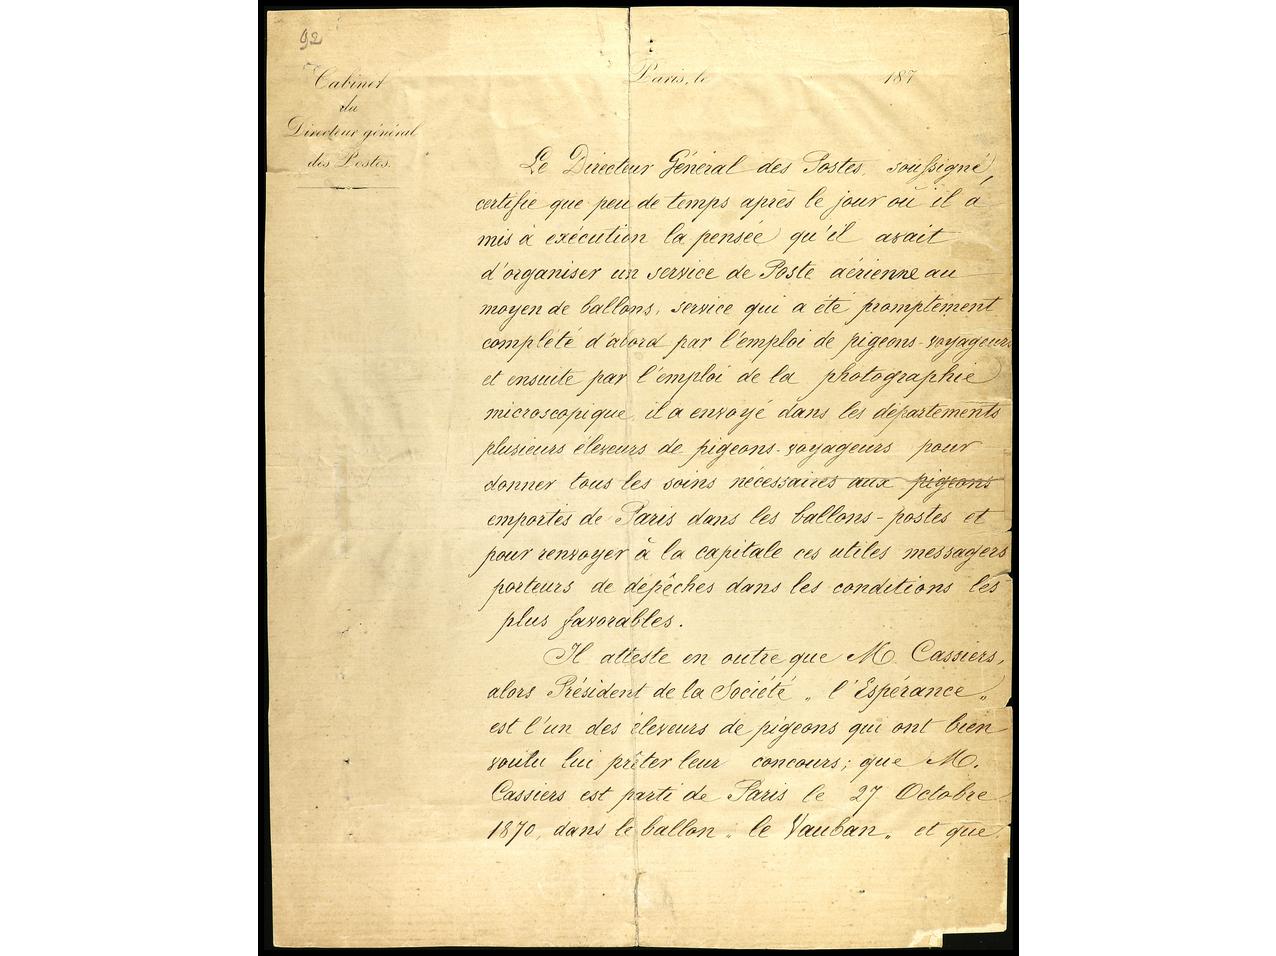 92
Cabinet
du
Directeur général
des Postes.
Paris, le 187
Le Directeur Général des Postes, soussigné,
certifie que peu de temps après le jour où il a
mis à exécution la pensée qu'il avait
d'organiser un service de Poste aérienne au
moyen de ballons, service qui a été promptement
complété d'abord par l'emploi de pigeons-voyageurs
et ensuite par l'emploi de la photographie
microscopique, il a envoyé dans les départements
plusieurs éleveurs de pigeons-voyageurs pour
donner tous les soins nécessaires aux pigeons
emportés de Paris dans les ballons-postes et
pour renvoyer à la capitale ces utiles messagers
porteurs de dépêches dans les conditions les
plus favorables.
Il atteste en outre que M. Cassiers,
alors Président de la Société „ l'Espérance „
est l'un des éleveurs de pigeons qui ont bien
voulu lui prêter leur concours; que M.
Cassiers est parti de Paris le 27 Octobre
1870, dans le ballon „ le Vauban „ et que